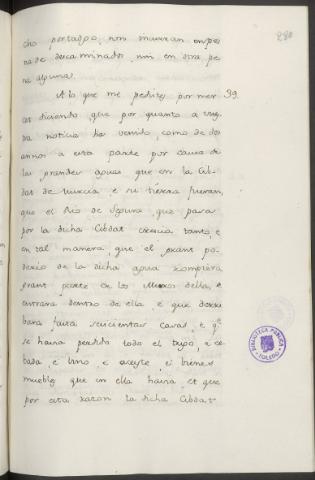 280
cho portadgo, nin incurran en pe
na de descaminados, nin en otra pe
na alguna.
A lo que me pedistes por mer 39
ced diciendo, que por quanto a vues
tra noticia ha venido, como de dos
annos a esta parte por causa de
las grandes aguas que en la Cib
dat de Murcia e su tierra fueran,
que el Rio de Segura, que pasa
por la dicha Cibdat crecia tanto, e
en tal manera, que el grant po
derio de la dicha agua rompiera
grant parte de los Muros della, e
entrara dentro de ella, e que derri
bara fasta seiscientas casas, e qe
se havia perdido todo el trigo, e ce
bada, e vino, e aceyte, e bienes
muebles que en ella havia, et que
por esta razon la dicha Cibdat
BIBLIOTECA PUBLICA
TOLEDO